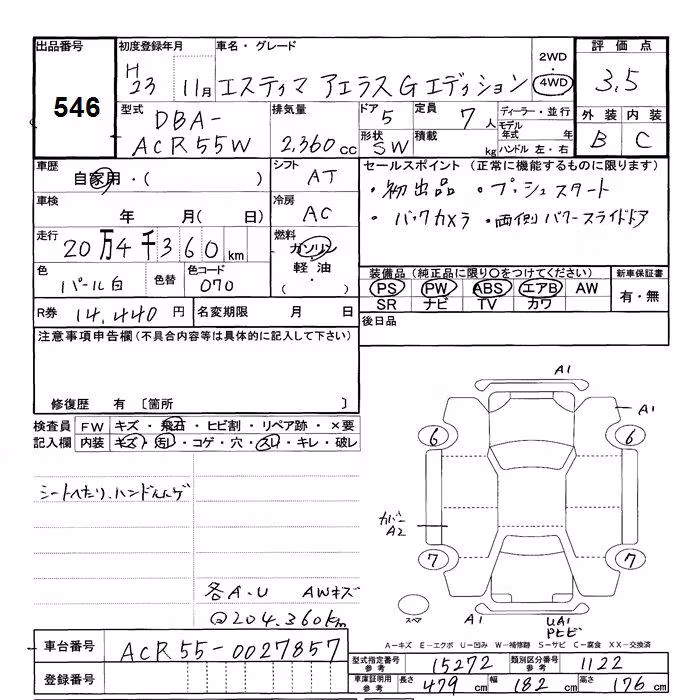 出品番号
546
初度登録年月
H23 11月
車名・グレード
エスティマ アエラスGエディション
2WD・4WD
評価点
3.5
外装 内装
B C
型式
DBA-
ACR55W
排気量
2,360cc
ドア
5
形状
SW
定員
7人
積載
kg
ディーラー・並行
モデル年式 年
ハンドル 左・右
車歴
自家用・( )
シフト
AT
車検
年 月( 日)
冷房
AC
走行
20万4千360km
燃料
ガソリン・軽油・( )
色
パール白
色替
色コード
070
R券 14,440円
名変期限 月 日
セールスポイント(正常に機能するものに限ります)
・初出品 ・プッシュスタート
・バックカメラ ・両側パワースライドドア
装備品(純正品に限り○をつけてください)
PS PW ABS エアB AW
SR ナビ TV カワ
新車保証書
有・無
後日品
注意事項申告欄(不具合内容等は具体的に記入して下さい)
修復歴 有 〔箇所 〕
検査員記入欄
FW キズ・飛石・ヒビ割・リペア跡・×要
内装 キズ・汚レ・コゲ・穴・スレ・キレ・破レ
シートヘたり、ハンドルハゲ
各A・U AWキズ
@204,360km
A1
A1
6
6
カバー
A2
7
7
スペア
A1
UA1
Pヒビ
A-キズ E-エクボ U-凹み W-補修跡 S-サビ C-腐食 XX-交換済
車台番号
ACR55-0027857
登録番号
型式指定番号参考
15272
類別区分番号参考
1122
車庫証明用参考
長さ 479cm 幅 182cm 高さ 176cm